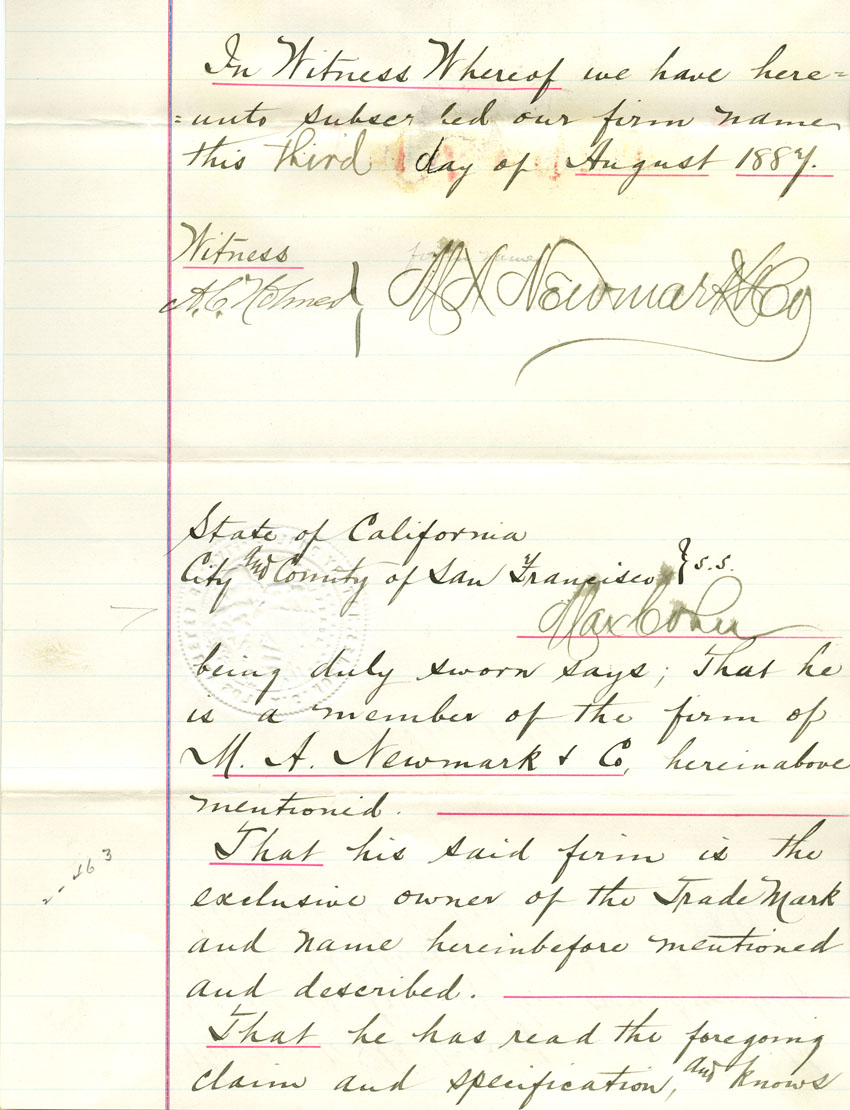 In Witness Whereof we have here=
=unto subscr bed our firm name
this third day of August 1887.
Witness
A.C. Holmes } M A Newmark & Co
State of California
City and County of San Francisco } S.S.
Max Cohn
being duly sworn says; That he
is a member of the firm of
M. A. Newmark & Co, hereinabove
mentioned.
That his said firm is the
exclusive owner of the Trade Mark
and name hereinbefore mentioned
and described.
That he has read the foregoing
claim and specification, and knows